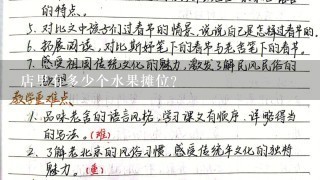 的特点。
5. 对比文中孩子们过春节的情景,说说自己是怎样过春节的。
6. 拓展阅读,对比斯好笔下的春节与老舍笔下的春节。
7. 感受祖国传统文化的魅力,激发了解民风民俗的
店里有多少个水果摊位?
教学重难点
1. 品味老舍的语言风格,学习课文有顺序、详略得当
的写法。(难)
2. 了解老北京的风俗习惯,感受传统年文化的独特
魅力。(重)